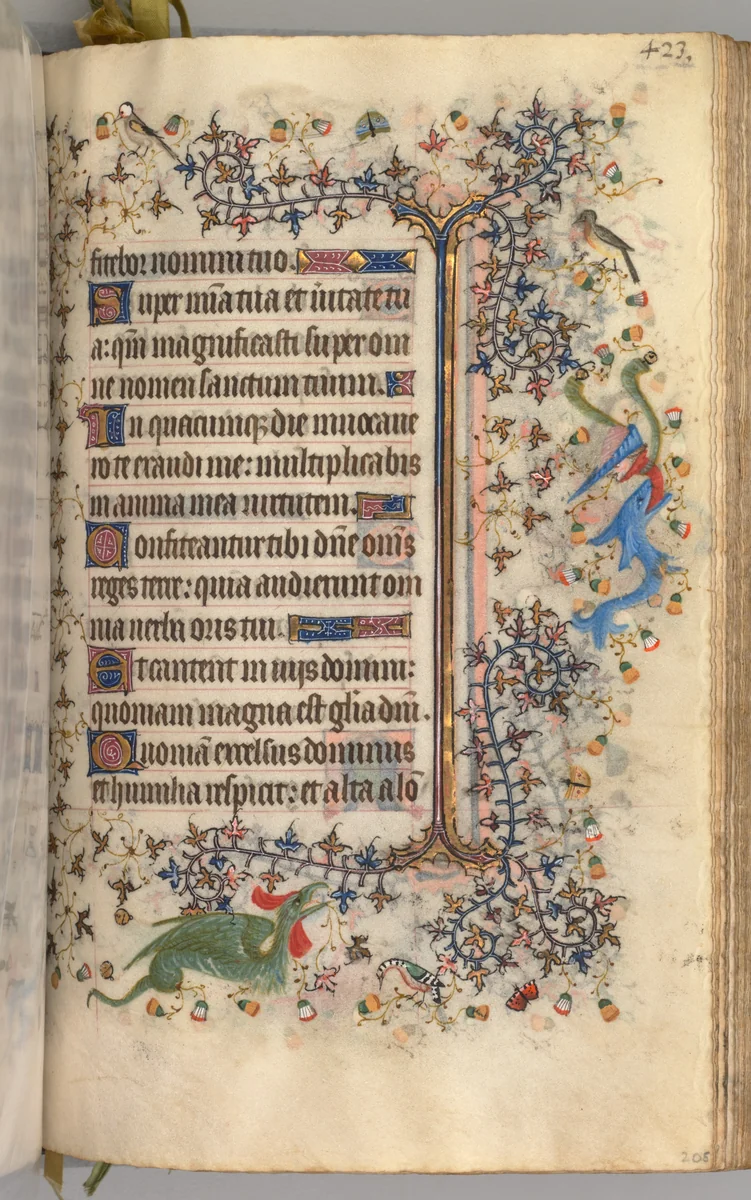 423,
fitebor nomini tuo.
Super mĩa tua et ũitate tu
a: qm̃ magnificasti super om
ne nomen sanctum tuum.
In quacumqꝫ die inuocaue
ro te exaudi me: multiplicabis
in anima mea uirtutem.
Confiteantur tibi dñe om̃s
reges terre: quia audierunt om
nia uerba oris tui.
Et cantent in uijs domini:
quoniam magna est glĩa dñi.
Quoniã excelsus dominus
et humilia respicit: et alta alõ
205